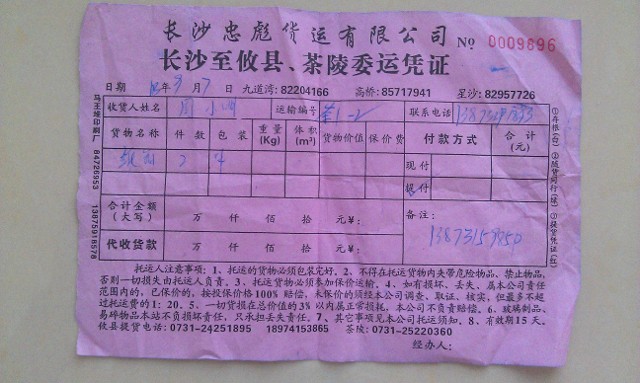 长沙忠彪货运有限公司 No 0009696
长沙至攸县、茶陵委运凭证
日期 年9月7日 九道湾:82204166 高桥:85717941 星沙:82957726
收货人姓名 周小 运输编号 联系电话
货物名称 件数 包装 重量(Kg) 体积(m³) 货物价值 保价费 付款方式 合计(元)
现付
欠付
合计金额(大写) 万 仟 佰 拾 元¥: 备注:
13873159850
代收货款 万 仟 佰 拾 元¥:
托运人注意事项:1、托运的货物必须包装完好。2、不得在托运货物内夹带危险物品、禁止物品,
否则一切损失由托运人负责。3、托运货物必须参加保价运输。4、如有损坏、丢失、属本公司责任
范围内的,已保价的,按投保价格100%赔偿,未保价的须经本公司调查、取证、核实,但最多不超
过托运费的1:20。5、一切货损在总价值的3%以内属正常损耗,本公司不负责赔偿。6、玻璃制品、
易碎物品本站不负损坏责任,只承担丢失责任。7、其它事项见本公司托运须知。8、有效期15天。
攸县提货电话:0731-24251895 18974153865 茶陵:0731-25220360
经办人:
马王堆印刷厂 84726953 13875918578
①存根(白) ②随货同行(绿) ③提货凭证(红)